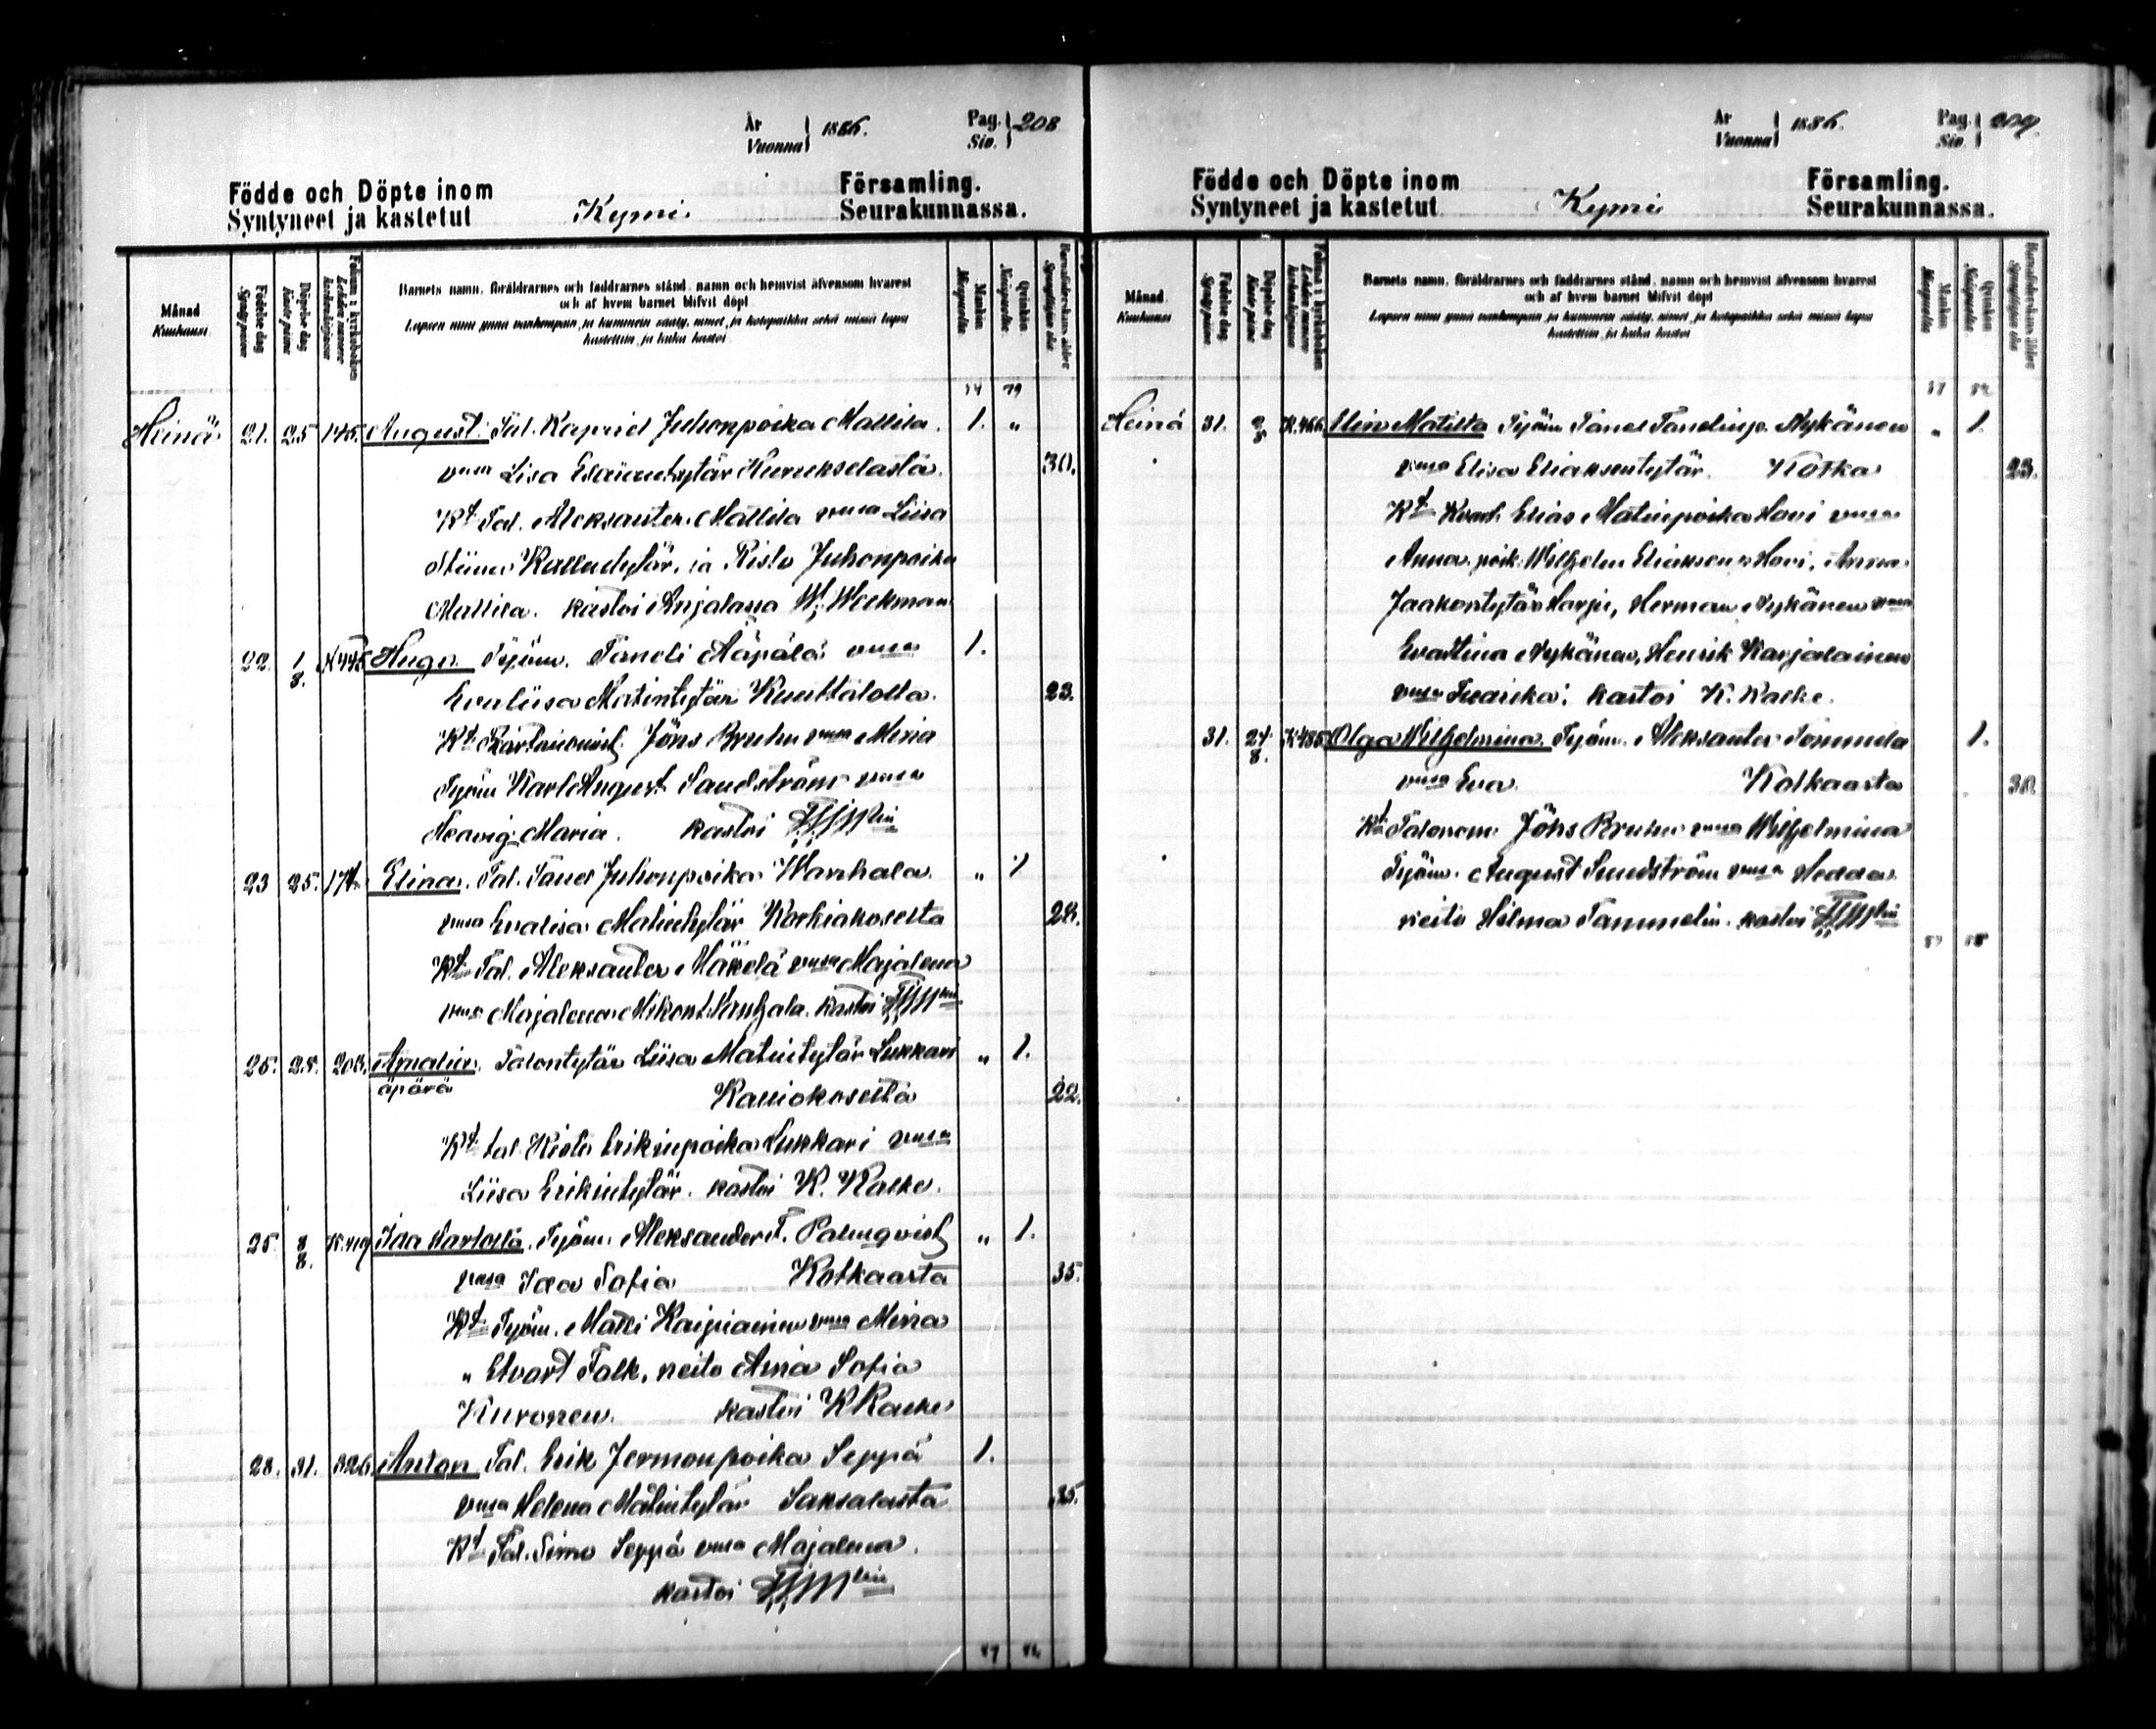 År Vuonna } 1886. Pag. Siv. } 208
Födde och Döpte inom Församling.
Syntyneet ja kastetut Kymi Seurakunnassa.
Månad Kuukausi
Födelse dag Syntypäivä
Döpelse dag Kaste päivä
Barnets namn, föräldrarnes och faddrarnes stånd, namn och hemvist äfvensom hvarest
och af hvem barnet blifvit döpt
Lapsen nimi ynnä vanhempain ja kummein sääty, nimet ja kotopaikka sekä missä lapsi
kastettiin ja kuka kastoi
Mankön Miespuolia
Qvinkön Naispuolia
74 79
Heinä 21. 25 145. August. Tal. Kapriel Juhonpoika Mallila. 1. "
vmsa Lisa Esaiintytär Kurukselasta. 30.
Kt Tal. Aleksanter Mallila vmsa Liisa
Stiina Kallentytär, ja Risto Juhonpoika
Mallila. kastoi Anjalassa W. Weckman
22. 1/8. K445 Hugo. Työm. Taneli Aäpälä vmsa 1.
Evaliisa Matintytär Kuuttalolla. 23.
Kt Jöns Bruhn vmsa Miina
Työm Karl August Sandström vmsa
Hedvig Maria. kastoi
23 25. 174 Elina. Tal. Tanel Juhonpoika Wanhala. " 1
vmsa Evalisa Matintytär Korkiakoselta 28.
Kt Tal. Aleksanter Mäkelä vmsa Majalena
vmsa Majalena Mikont. Wanhala. kastoi
25. 25. 203. Amalia. Talontytär Liisa Matintytär Lukkari " 1.
äpärä Kalliokoselta 22.
Kt tal. Risto Erikinpoika Lukkari vmsa
Liisa Erikintytär. kastoi K. Raeke.
25. 8/8. K.419 Ida Karlotta. Työm. Aleksander F. Palmqvist " 1.
vmsa Ida Sofia Kotkaasta 35.
Kt Työm. Matti Kaipiainen vmsa Miina
" Edvart Falk, neito Aina Sofia
Kuronen. kastoi K Raeke
28. 31. 326. Anton Tal. Erik Jermonpoika Seppä 1.
vmsa Helena Matintytär Saksalasta 35.
Kt Tal. Simo Seppä vmsa Majalena.
kastoi
År Vuonna } 1886. Pag. Siv. } 209.
Födde och Döpte inom Församling.
Syntyneet ja kastetut Kymi Seurakunnassa.
Månad Kuukausi
Födelse dag Syntypäivä
Döpelse dag Kaste päivä
Barnets namn, föräldrarnes och faddrarnes stånd, namn och hemvist äfvensom hvarest
och af hvem barnet blifvit döpt
Lapsen nimi ynnä vanhempain ja kummein sääty, nimet ja kotopaikka sekä missä lapsi
kastettiin ja kuka kastoi
Mankön Miespuolia
Qvinkön Naispuolia
Heinä 31. K.466 Elina Matilta Työm Tanel Tanelinp. Nykänen " 1.
vmsa Elisa Eliaksentytär. Kotka 23.
Kt Elias Matinpoika Hovi vmsa
Anna, poik. Wilhelm Eliaksenp Hovi, Anna
Jaakontytär Harju, Herman Nykänen vmsa
Evastina Nykänen, Henrik Karjalainen
vmsa kastoi K. Raeke.
31. 24/8. K.485 Olga Wilhelmina. Työm. Aleksanter Tommila 1.
vmsa Eva. Kotkaasta 30
Kt Talonom. Jöns Bruhn vmsa Wilhelmina
Työm. August Sundström vmsa Hedda
neito Hilma Tammelin. kastoi